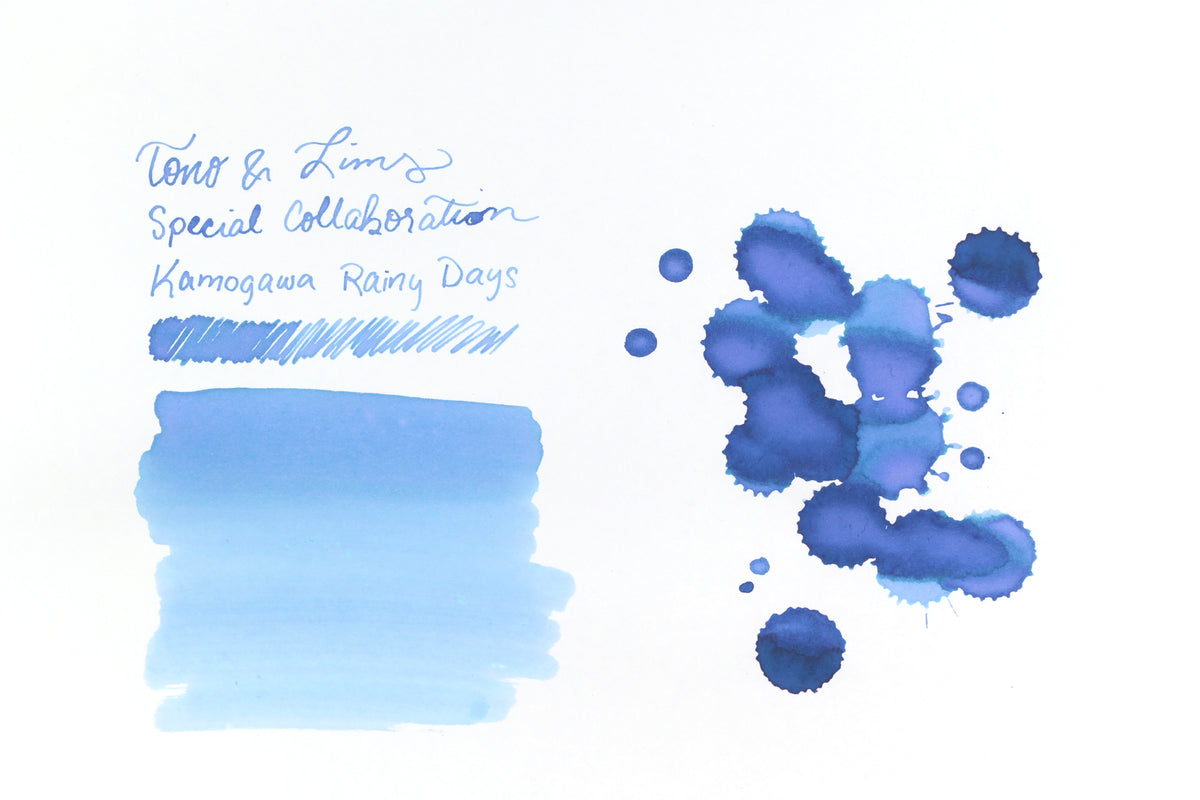 Tono & Lims
Special Collaboration
Kamogawa Rainy Days